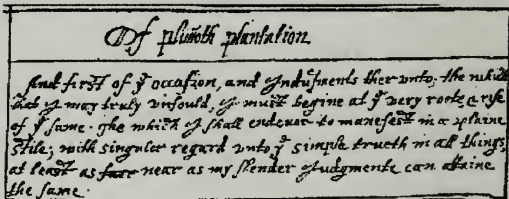 Of plimoth plantation
And first of yͤ occasion, and Indusments ther unto; the which
that I may truly unfould, I must begine at yͤ very roote & rise
of yͤ same. The which I shall endevor to manefest in a plaine
stile; with singuler regard unto yͤ simple trueth in all things,
at least as near as my slender Judgmente can attaine
the same.